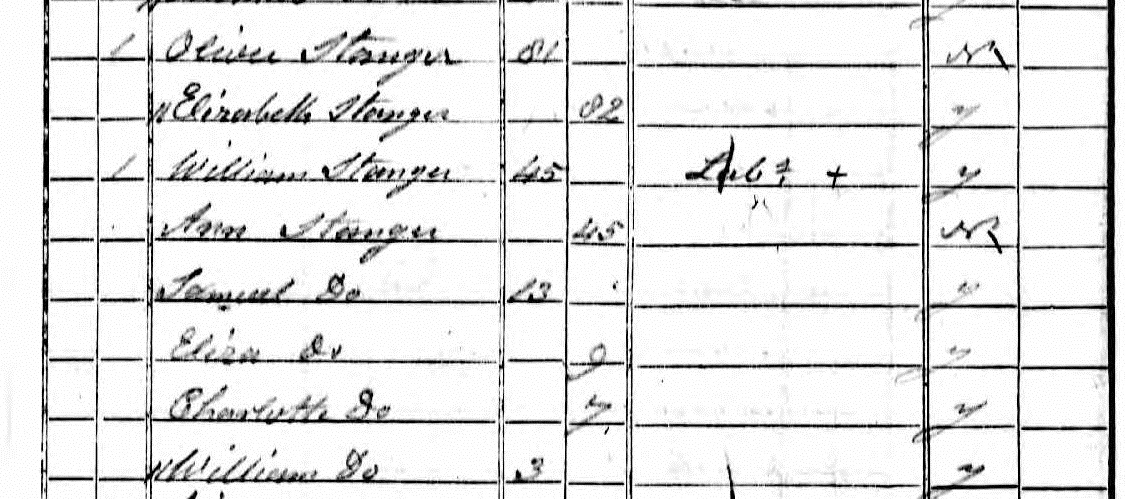 1 Oliver Stanger 81 N
" Elizabeth Stanger 82 y
1 William Stanger 45 Lab r + y
Ann Stanger 45 N
Samuel Do 13 y
Eliza Do 9 y
Charlotte Do 7 y
" William Do 3 y